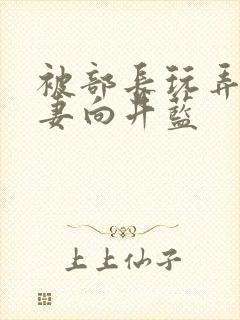 被部长玩弄
妻向井蓝
上上仙子